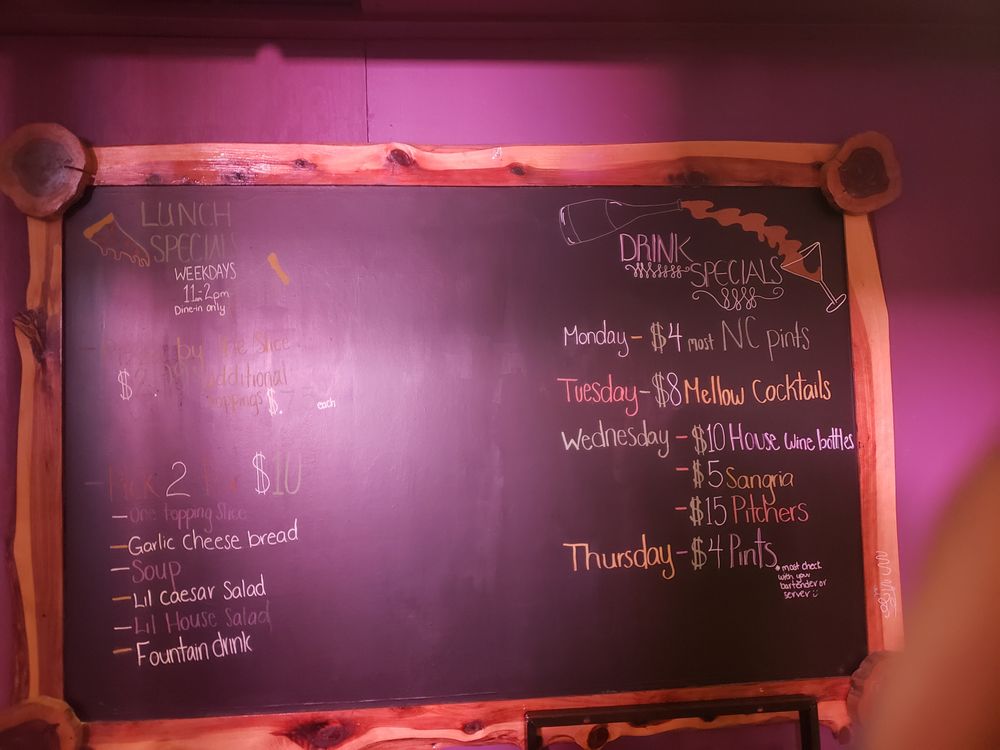 LUNCH
SPECIALS
WEEKDAYS
11-2pm
Dine-in only
by the slice
$2
additional
toppings $. each
Pick 2 For $10
- One topping slice
- Garlic cheese bread
- Soup
- Lil caesar Salad
- Lil House Salad
- Fountain drink
DRINK
SPECIALS
Monday - $4 most NC pints
Tuesday - $8 Mellow Cocktails
Wednesday - $10 House wine bottles
- $5 Sangria
- $15 Pitchers
Thursday - $4 Pints
* most check
with your
bartender or
server